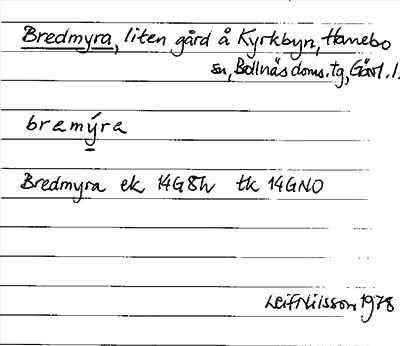 Bredmyra, liten gård å Kyrkbyn, Hanebo
sn, Bollnäs doms. tg, Gävl. l.
bramýra
Bredmyra ek 14G8h tk 14GNO
Leif Nilsson 1978